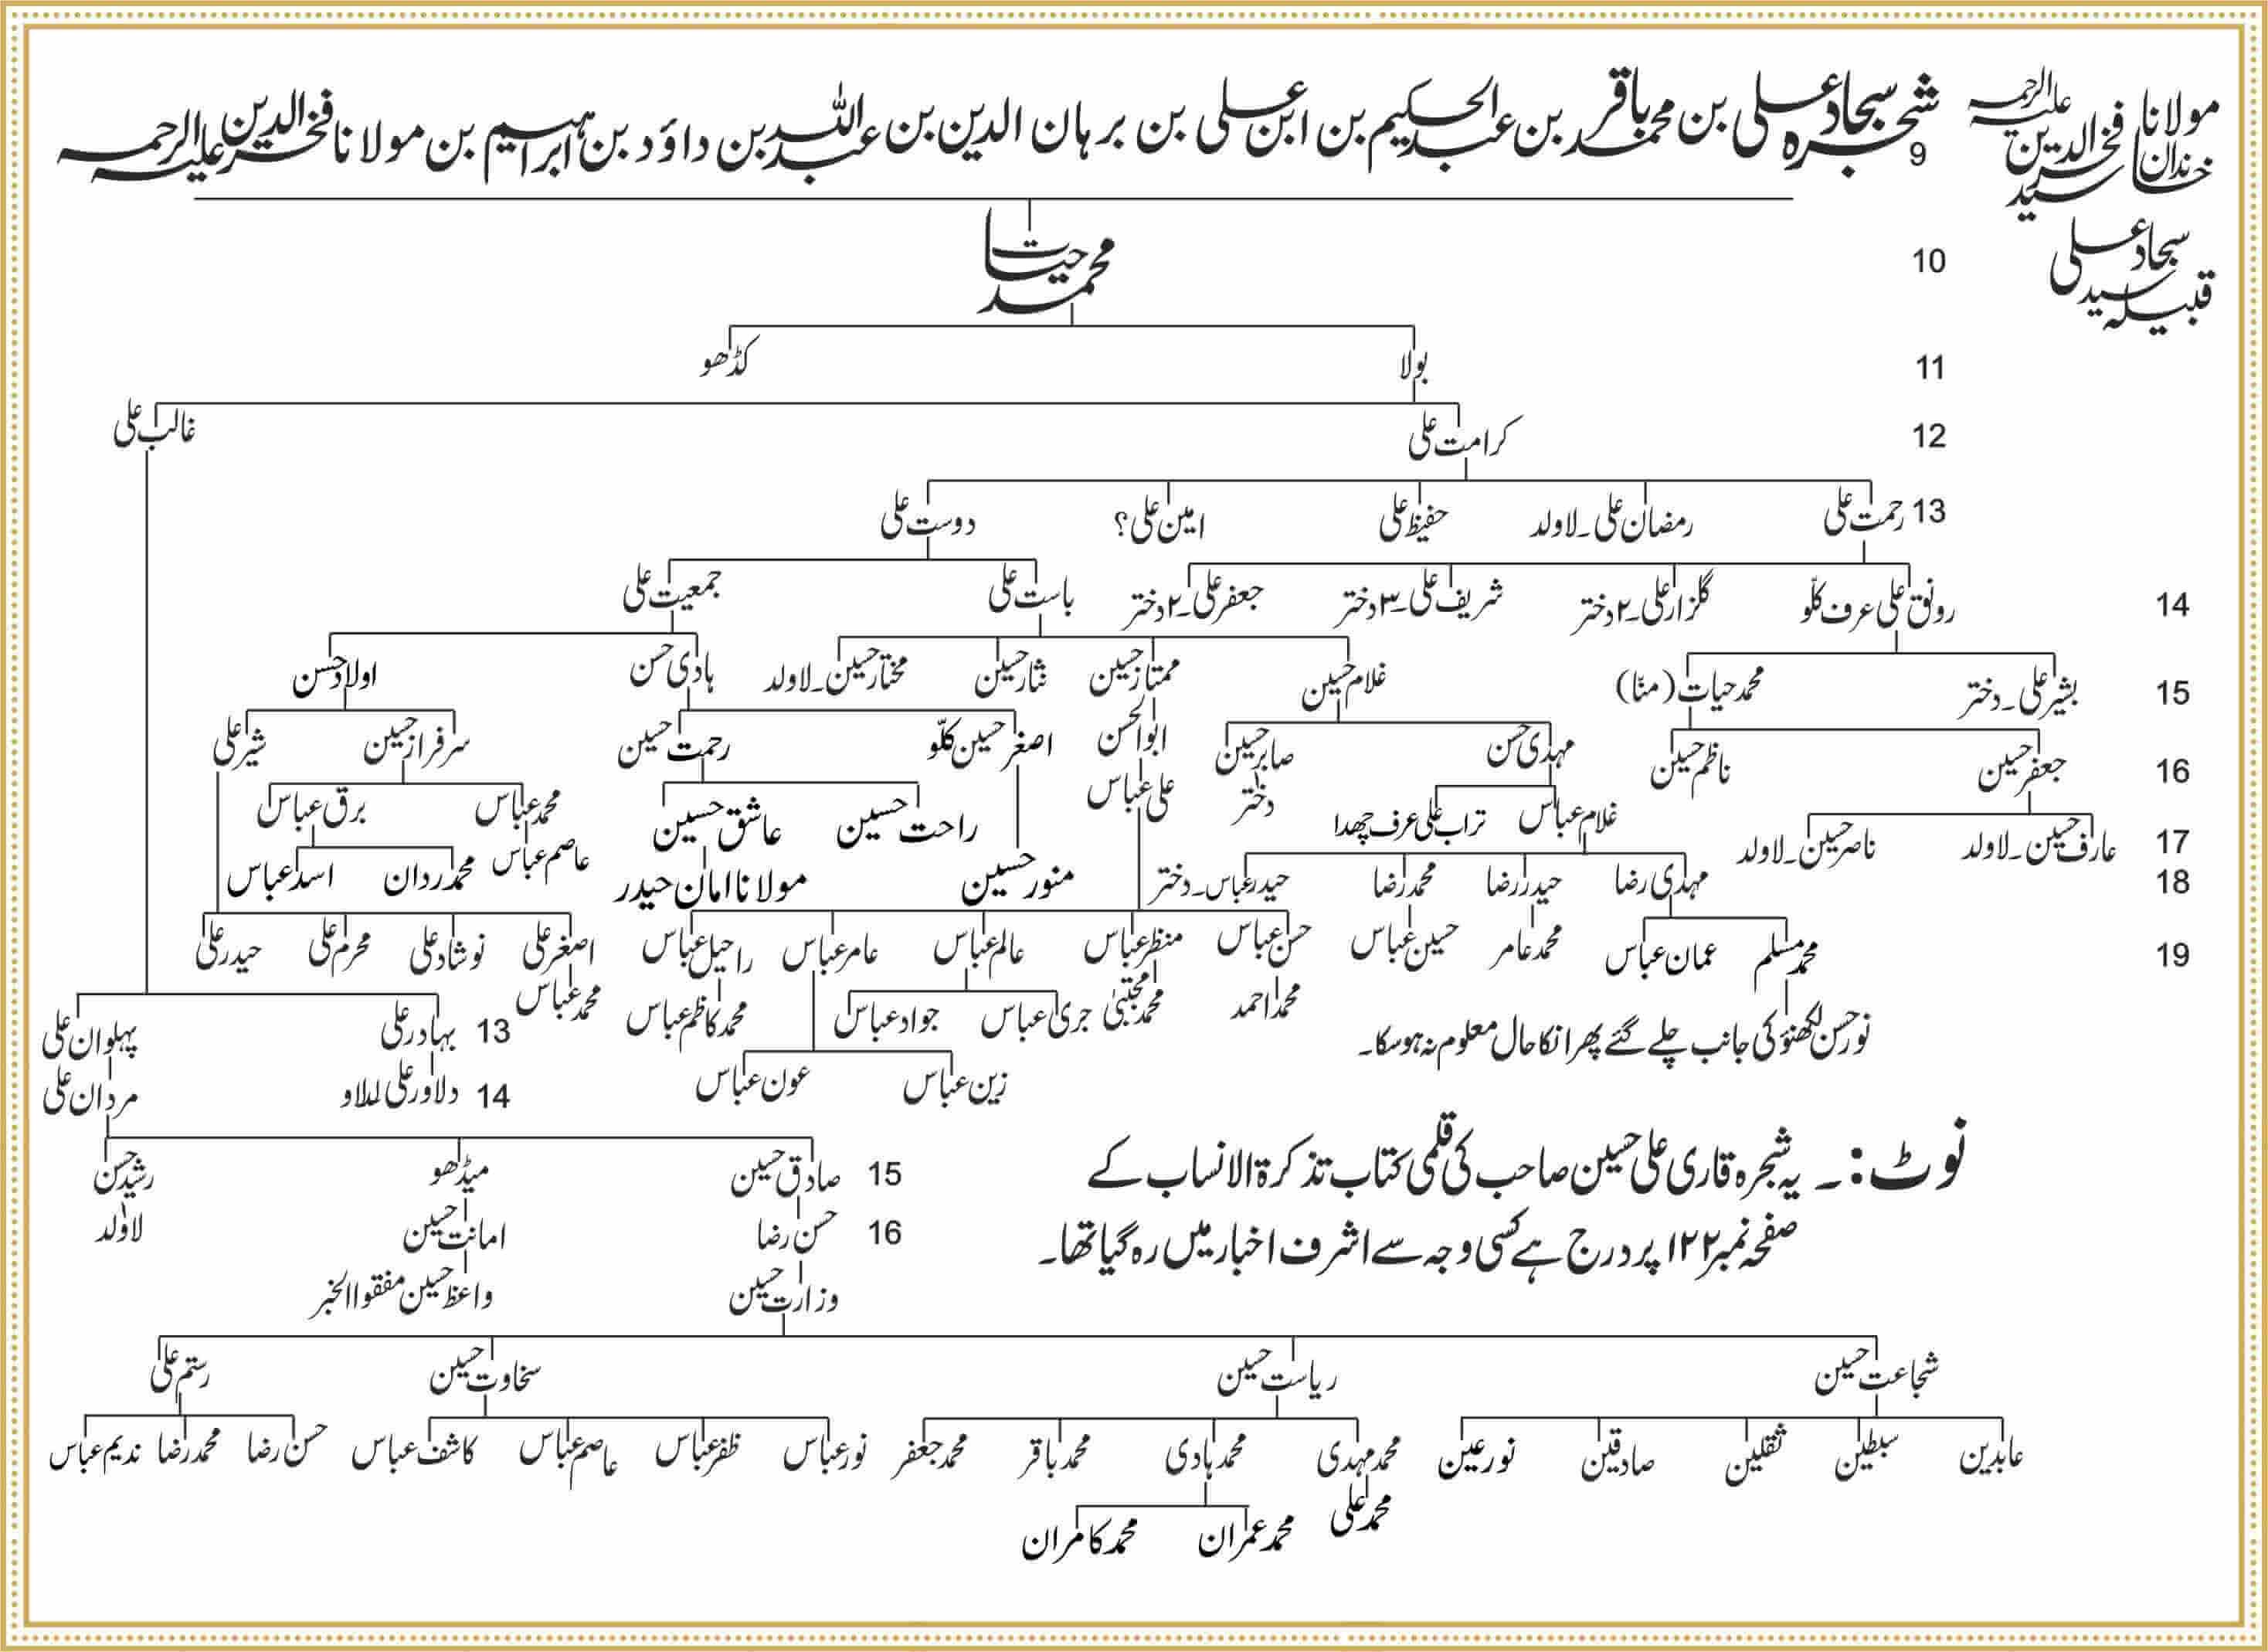 مولانا فخرالدین علیہ الرحمہ
خاندان سید
قبیلہ سید سجاد علی
شجرہ سجاد علی بن محمد باقر بن عبدالحکیم بن ابن علی بن برہان الدین بن عبداللہ بن داؤد بن ابراہیم بن مولانا فخرالدین علیہ الرحمہ
9
محمد حیات
10
بولا کڈھو
11
کرامت علی غالب علی
12
رحمت علی رمضان علی۔لاولد حفیظ علی امین علی؟ دوست علی
13
رونق علی عرف کلّو گلزار علی۔۲دختر شریف علی۔۳دختر جعفر علی۔۲دختر باست علی جمعیت علی
14
بشیر علی۔دختر محمد حیات (منّا) غلام حسین ممتاز حسین نثار حسین مختار حسین۔لاولد ہادی حسن اولاد حسن
15
جعفر حسین ناظم حسین مہدی حسن صابر حسین ابوالحسن اصغر حسین کلّو رحمت حسین سرفراز حسین شیر علی
16
عارف حسین۔لاولد ناصر حسین۔لاولد غلام عباس تراب علی عرف چھدا دختر علی عباس راحت حسین عاشق حسین محمد عباس برق عباس
17
مہدی رضا حیدر رضا محمد رضا حیدر عباس۔دختر منور حسین مولانا امان حیدر عاصم عباس محمد ردان اسد عباس
18
محمد مسلم عمان عباس محمد عامر حسین عباس حسن عباس منظر عباس عالم عباس عامر عباس راحیل عباس اصغر علی نوشاد علی محرم علی حیدر علی
19
محمد احمد محمد مجتبیٰ جری عباس جواد عباس محمد کاظم عباس محمد عباس
نور حسن لکھنؤ کی جانب چلے گئے پھر انکا حال معلوم نہ ہوسکا۔
زین عباس عون عباس
13 بہادر علی پہلوان علی
14 دلاور علی لملاو مردان علی
15 صادق حسین میڈھو رشید حسن
16 حسن رضا امانت حسین لاولد
وزارت حسین واعظ حسین مفقوا الخبر
نوٹ:۔ یہ شجرہ قاری علی حسین صاحب کی قلمی کتاب تذکرۃ الانساب کے
صفحہ نمبر ۱۲۲ پر درج ہے کسی وجہ سے اشرف اخبار میں رہ گیا تھا۔
شجاعت حسین ریاست حسین سخاوت حسین رستم علی
عابدین سبطین ثقلین صادقین نور عین محمد مہدی محمد ہادی محمد باقر محمد جعفر نور عباس ظفر عباس عاصم عباس کاشف عباس حسن رضا محمد رضا ندیم عباس
محمد علی محمد عمران محمد کامران